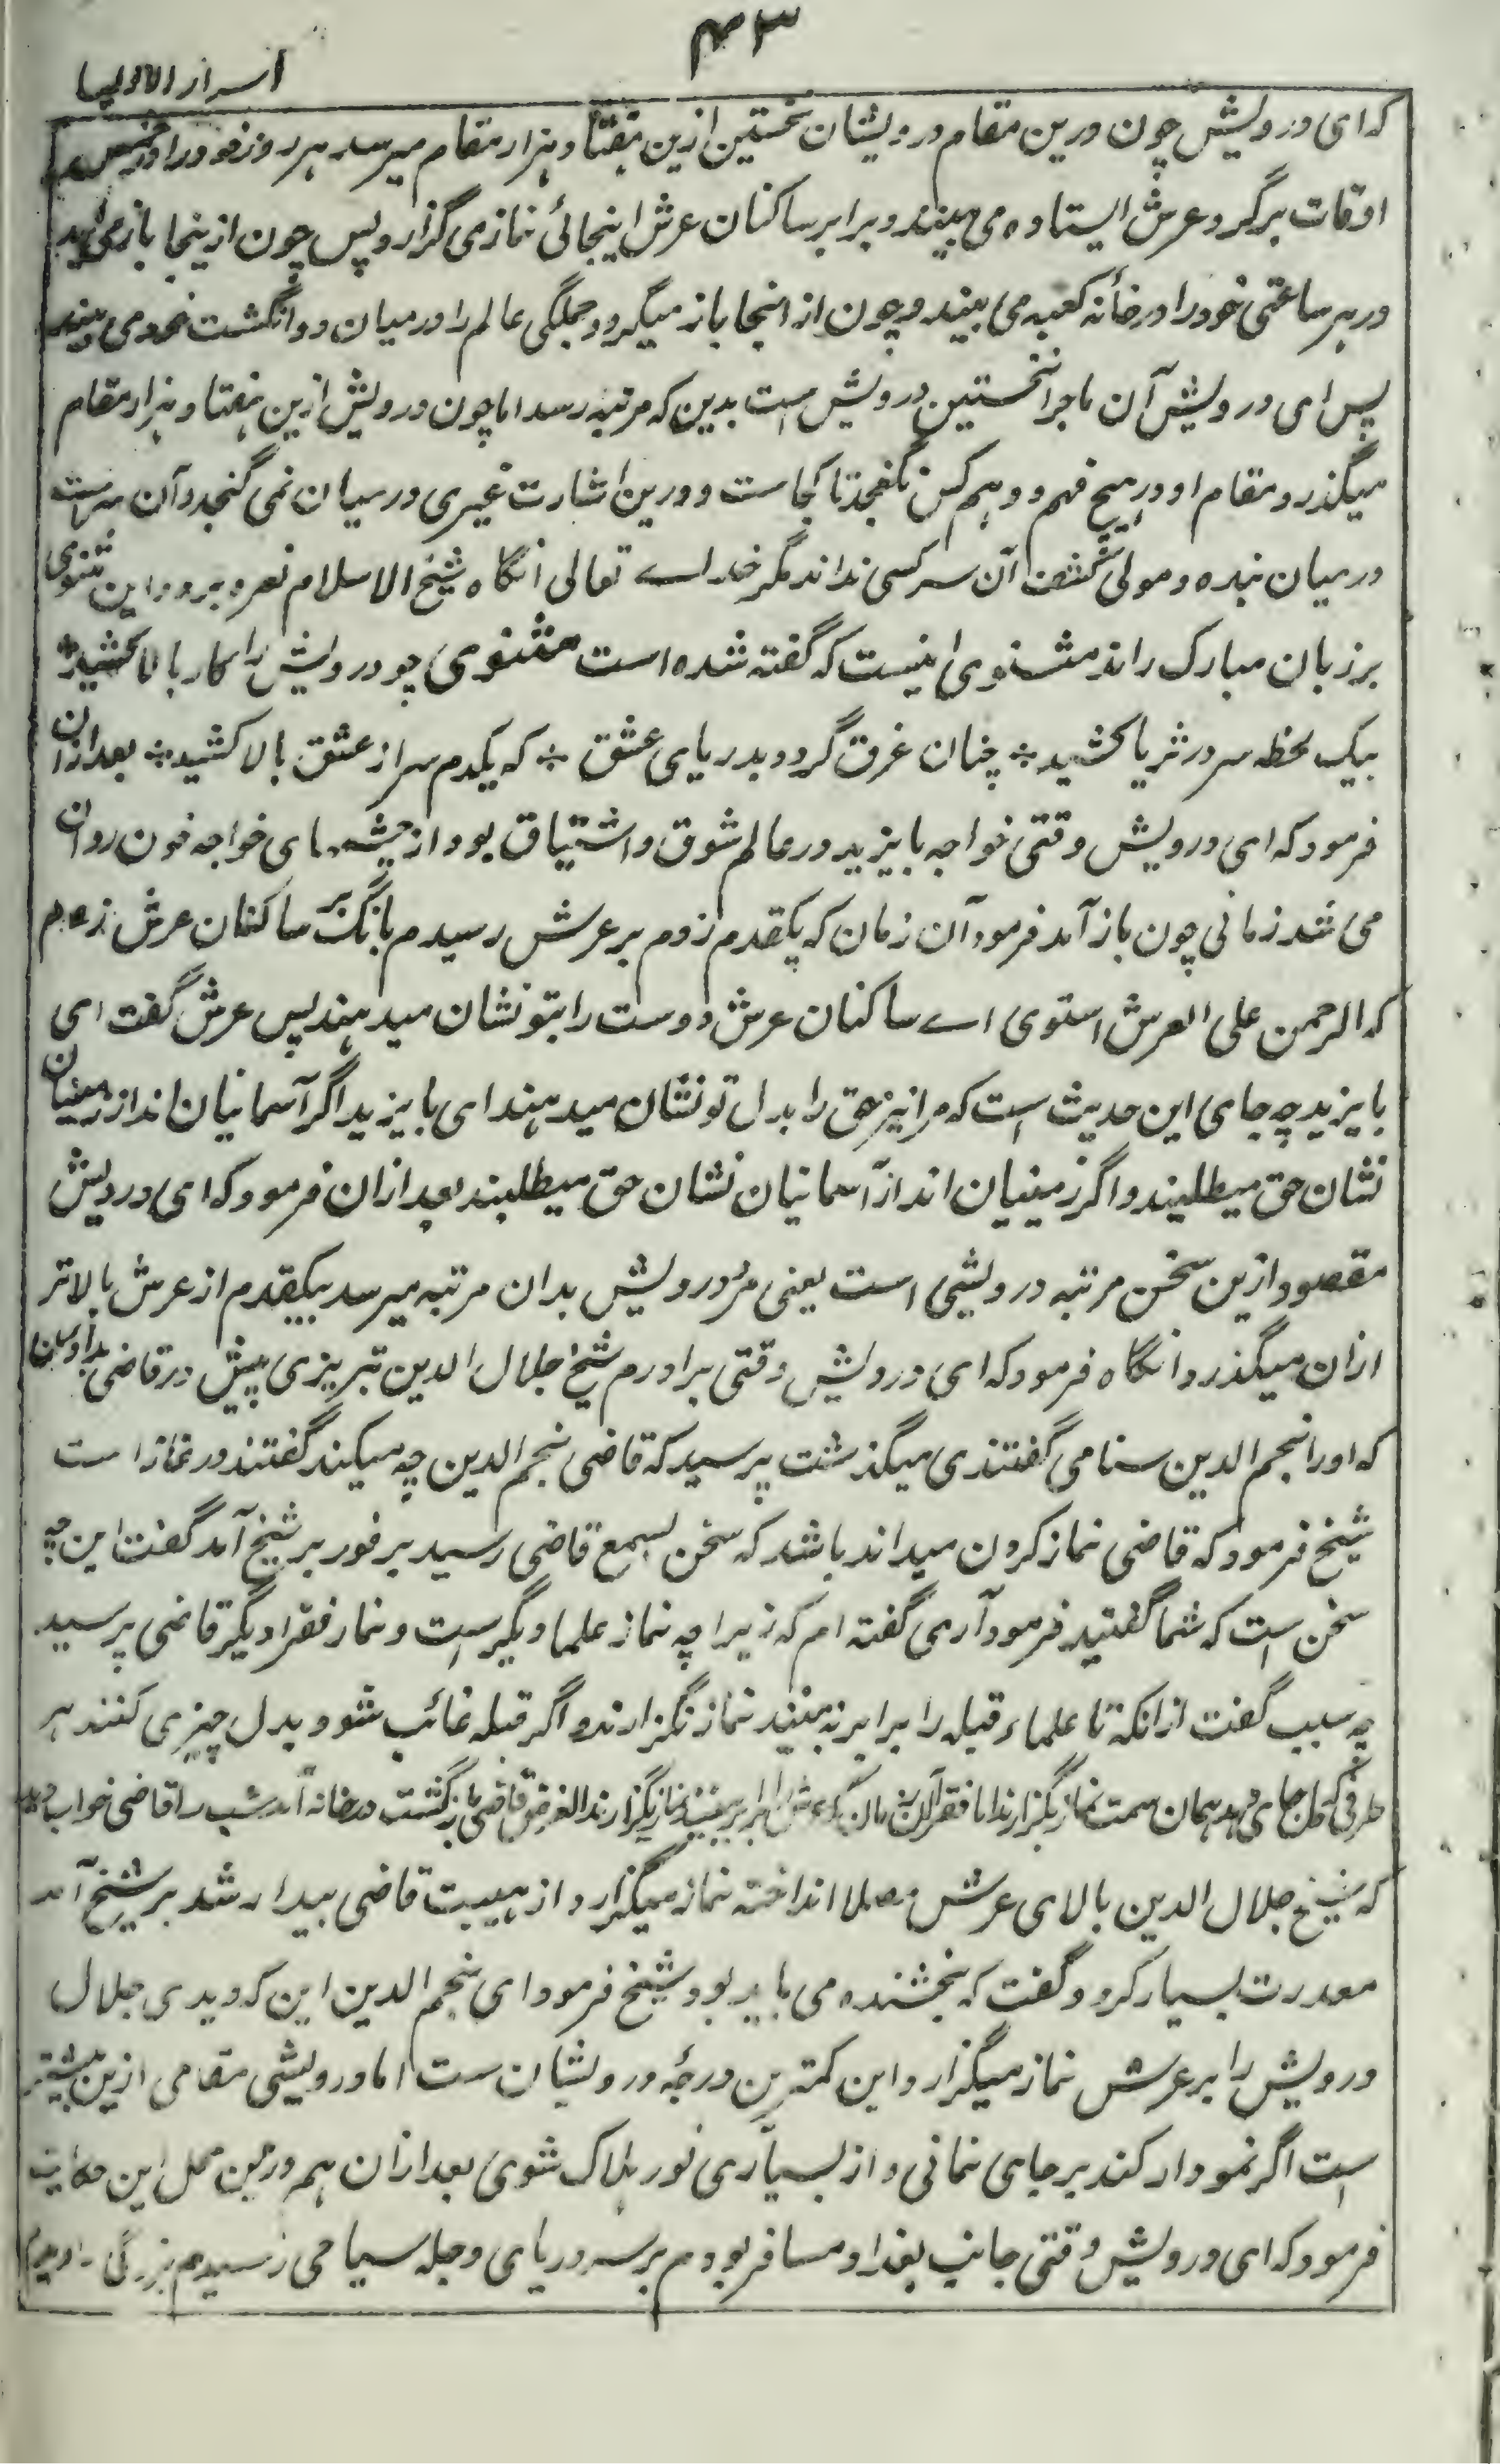 ۴۳
اسرار الاولیا
که ای درویش چون درین مقام درویشان نخستین ازین هفتاد هزار مقام میرسد هر روز خود را در خمس
اوقات برگرد عرش ایستاده می بیند و برابر ساکنان عرش اینجائی نماز می گزارد پس چون ازینجا باز می آید
در هر ساعتی خود را در خانه کعبه می بیند و چون از انجا باز میگردد جملگی عالم را در میان دو انگشت خود می بیند
پس ای درویش آن ماجرا نخستین درویش است بدین که مرتبه رسد اما چون درویش ازین هفتاد هزار مقام
میگذرد مقام او در هیچ فهم و وهم کس نگنجد تا کجاست و درین اشارت غیری در میان نمی گنجد و آن سرّیست
در میان بنده و مولی کشف آن سر کسی نداند مگر خدای تعالی انگاه شیخ الاسلام نعره بزد و این مثنوی
بر زبان مبارک راند مثنوی اینست که گفته شده است مثنوی چو درویش را کار بالا کشید ؞
بیک لحظه سر در ثریا کشید ؞ چنان غرق گردد بدریای عشق ؞ که یکدم سر از عشق بالا کشید ؞ بعد ازان
فرمود که ای درویش وقتی خواجه بایزید در عالم شوق و اشتیاق بود از چشمهای خواجه خون روان
می شد زمانی چون باز آمد فرمود آن زمان که یکقدم زدم بر عرش رسیدم بانگ بر ساکنان عرش زدم
که الرحمن علی العرش استوی اے ساکنان عرش دوست را بتو نشان میدهند پس عرش گفت ای
بایزید چه جای این حدیث است که مرا نیز حق را بدل تو نشان میدهند ای بایزید اگر آسمانیان اند از زمینیان
نشان حق میطلبند و اگر زمینیان اند از آسمانیان نشان حق میطلبند بعد ازان فرمود که ای درویش
مقصود ازین سخن مرتبه درویشی است یعنی مرد درویش بدان مرتبه میرسد بیکقدم از عرش بالاتر
ازان میگذرد انگاه فرمود که ای درویش وقتی برادرم شیخ جلال الدین تبریزی پیش در قاضی بداون
که اورا نجم الدین سنامی گفتندی میگذشت پرسید که قاضی نجم الدین چه میکند گفتند در نماز است
شیخ فرمود که قاضی نماز کردن میداند باشد که سخن بسمع قاضی رسید بر فور بر شیخ آمد گفت این چه
سخن است که شما گفتید فرمود آری گفته ام که زیرا چه نماز علما دیگر است و نماز فقرا دیگر قاضی پرسید
چه سبب گفت از انکه تا علماء قبله را برابر نه بینند نماز نگزارند و اگر قبله غائب شود بدل چیزی کنند هر
طرفی که دل جای می دهد همان سمت نماز بگزارند اما فقرا عرش را برابر نه بینند نماز نگزارند الغرض قاضی باز گشت در خانه آمد شب را قاضی خواب دید
که شیخ جلال الدین بالای عرش مصلا انداخته نماز میگزارد از هیبت قاضی بیدار شد بر شیخ آمد
معذرت بسیار کرد و گفت که بخشنده می باید بود شیخ فرمود ای نجم الدین این که دیدی جلال
درویش را بر عرش نماز میگزارد این کمترین درجۀ درویشان ست اما درویشی مقامی ازین بیشتر
است اگر نمودار کند بر جای نمانی و از بسیاری نور هلاک شوی بعد ازان هم درین محل این حکایت
فرمود که ای درویش وقتی جانب بغداد مسافر بودم بر سر دریای دجله سیاحی رسیدم بزرگی را دیدم